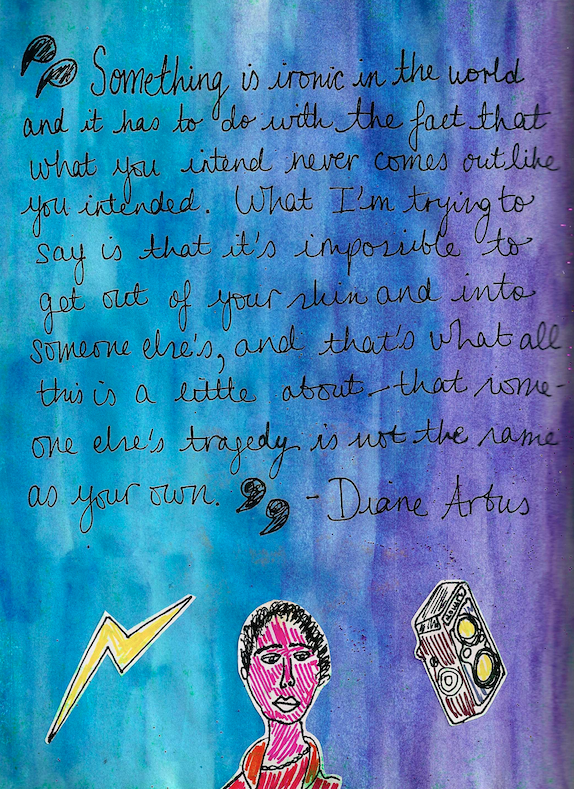 "Something is ironic in the world
and it has to do with the fact that
what you intend never comes out like
you intended. What I'm trying to
say is that it's impossible to
get out of your skin and into
someone else's, and that's what all
this is a little about - that some-
one else's tragedy is not the same
as your own." - Diane Arbus